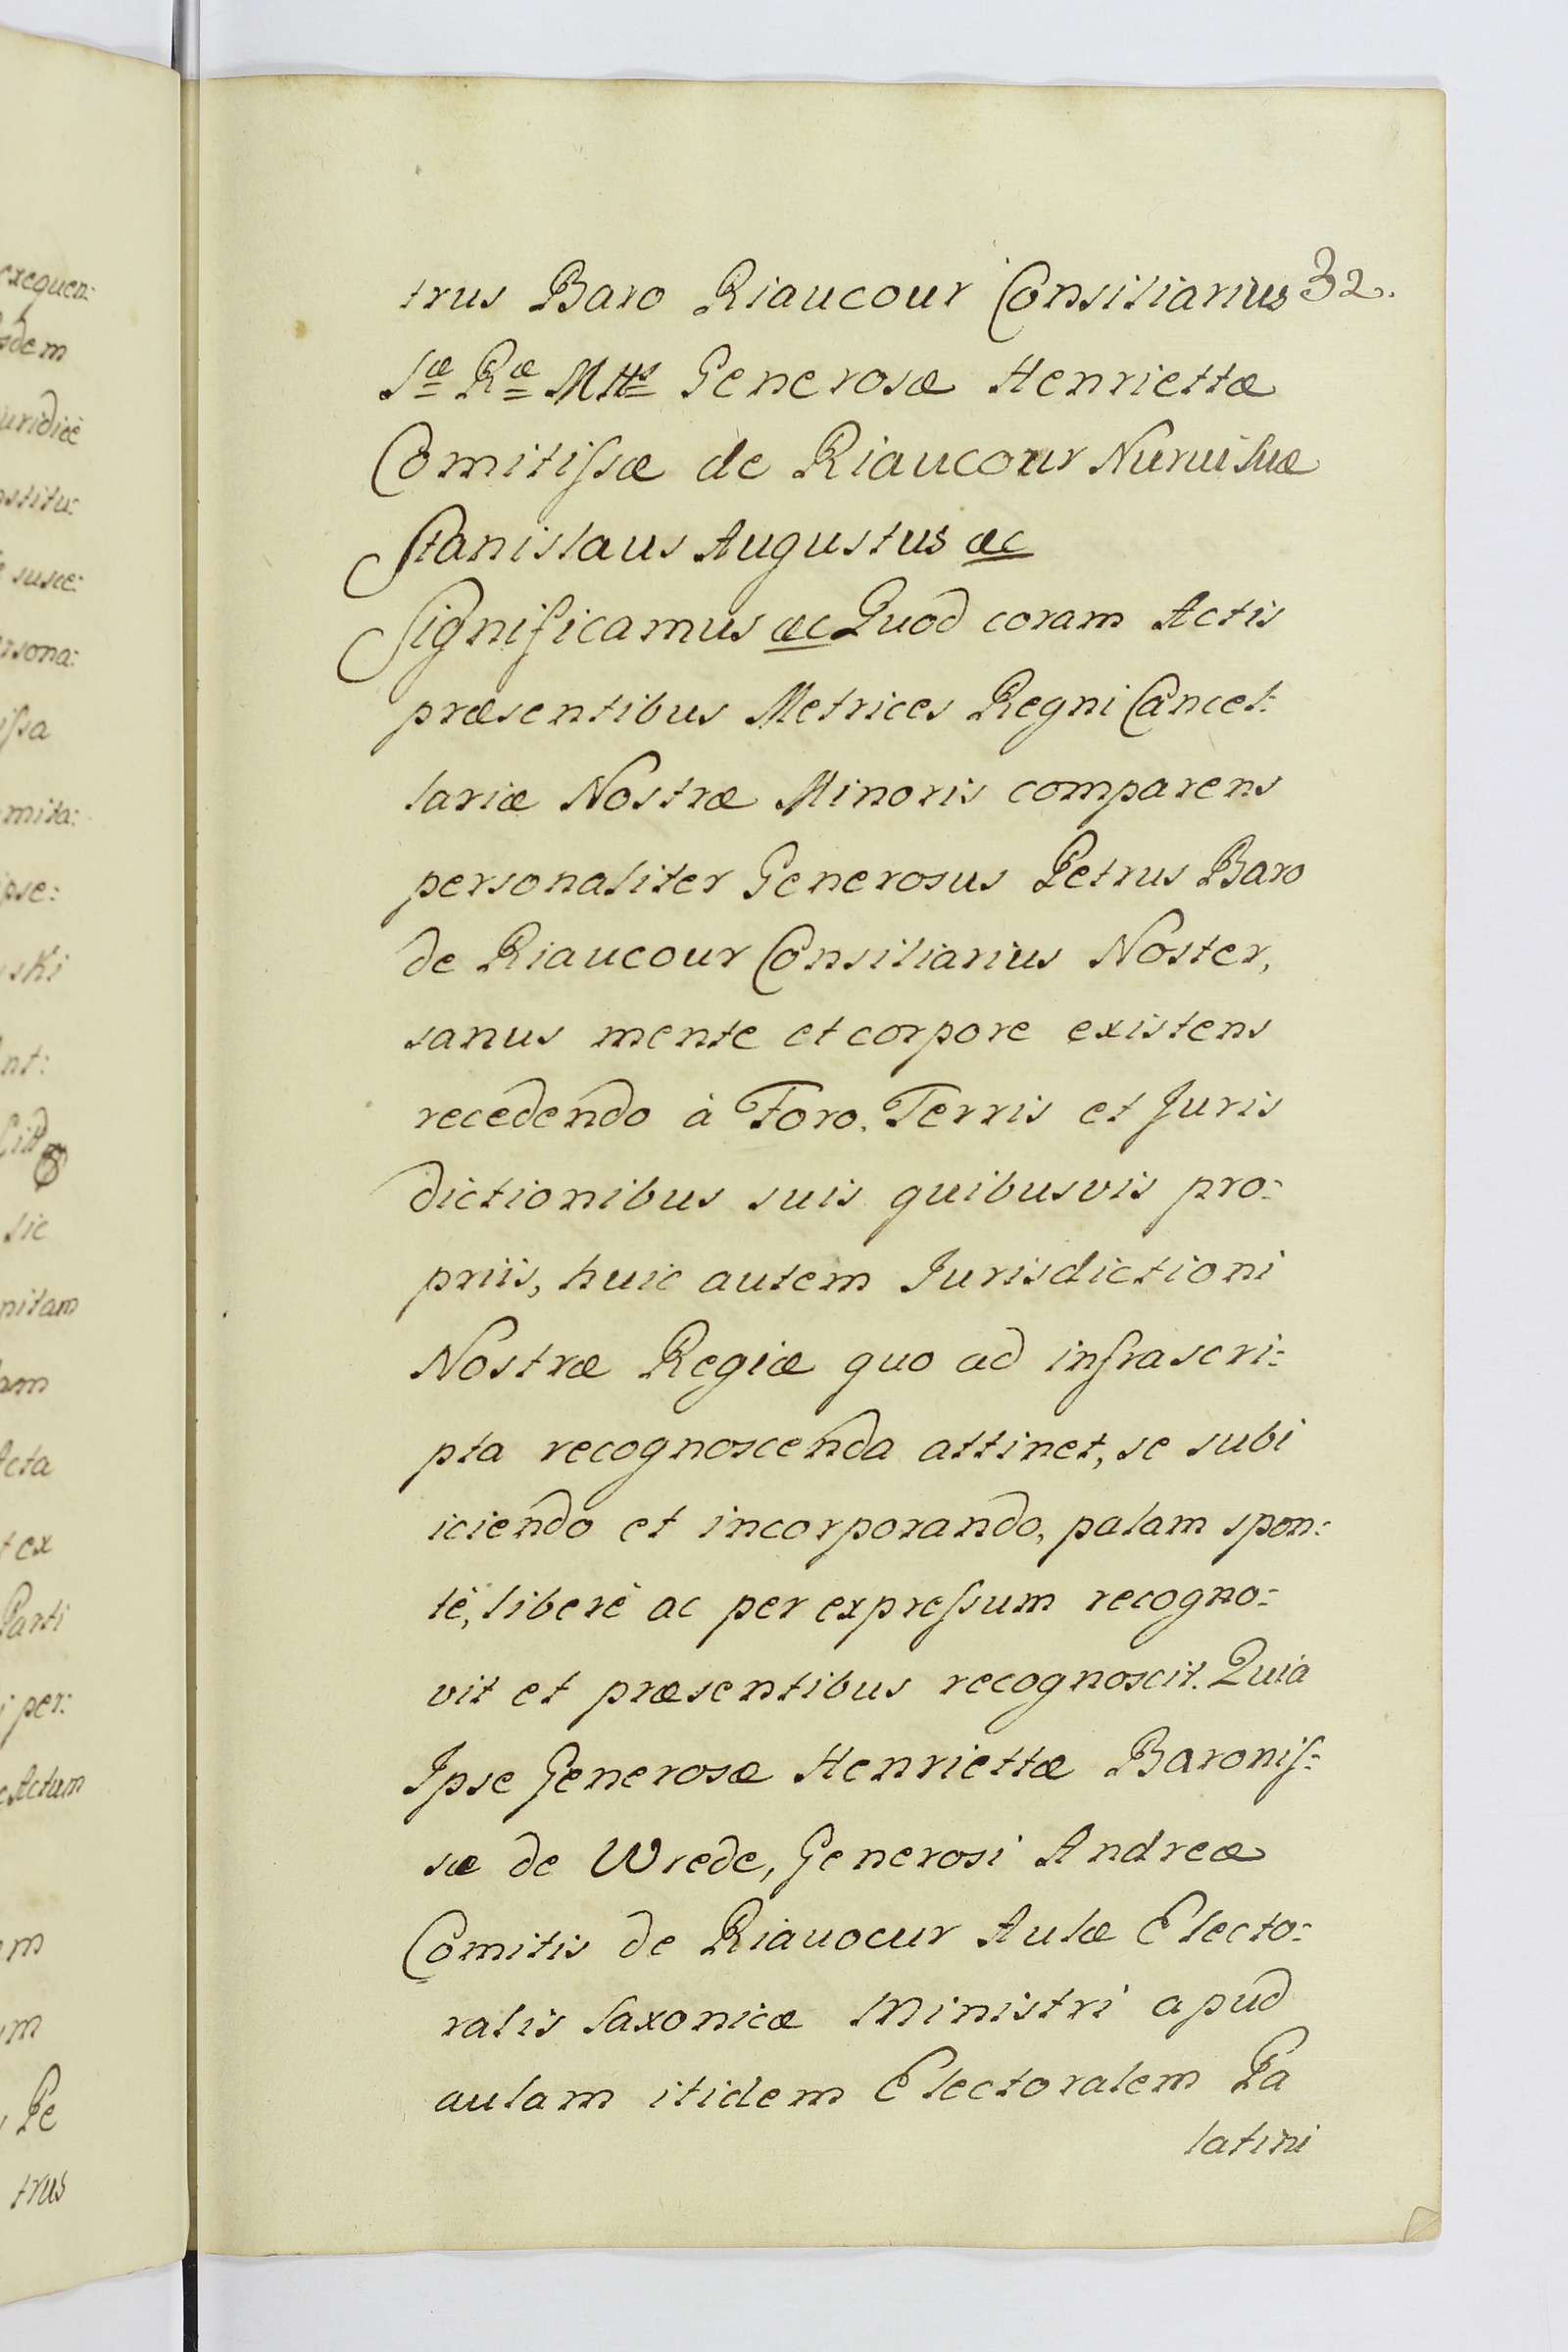 exequen:
sdem
uridicè
nstitu:
susce:
rsona:
issa
mita:
pse:
ski
nt:
sic
nitam
Acta
t ex
Parti
i per:
Actum
m
m
Pe
trus
trus Baro Riaucour Consiliarius 32.
Sæ Ræ Mttis Generosæ Henriettæ
Comitissæ de Riaucour Nurui suæ
Stanislaus Augustus æc
Significamus æc Quod coram Actis
præsentibus Metrices Regni Cancel:
lariæ Nostræ Minoris comparens
personaliter Generosus Petrus Baro
de Riaucour Consiliarius Noster,
sanus mente et corpore existens
recedendo à Foro, Terris et Juris
dictionibus suis quibusvis pro:
priis, huic autem Jurisdictioni
Nostræ Regiæ quo ad infrascri:
pta recognoscenda attinet, se subi
iciendo et incorporando, palam spon:
tè, liberè ac per expressum recogno:
vit et præsentibus recognoscit. Quia
Ipse Generosæ Henriettæ Baronis:
sæ de Wrede, Generosi Andreæ
Comitis de Riauocur Aulæ Electo:
ralis Saxonicæ Ministri apud
aulam itidem Electoralem Pa
latini